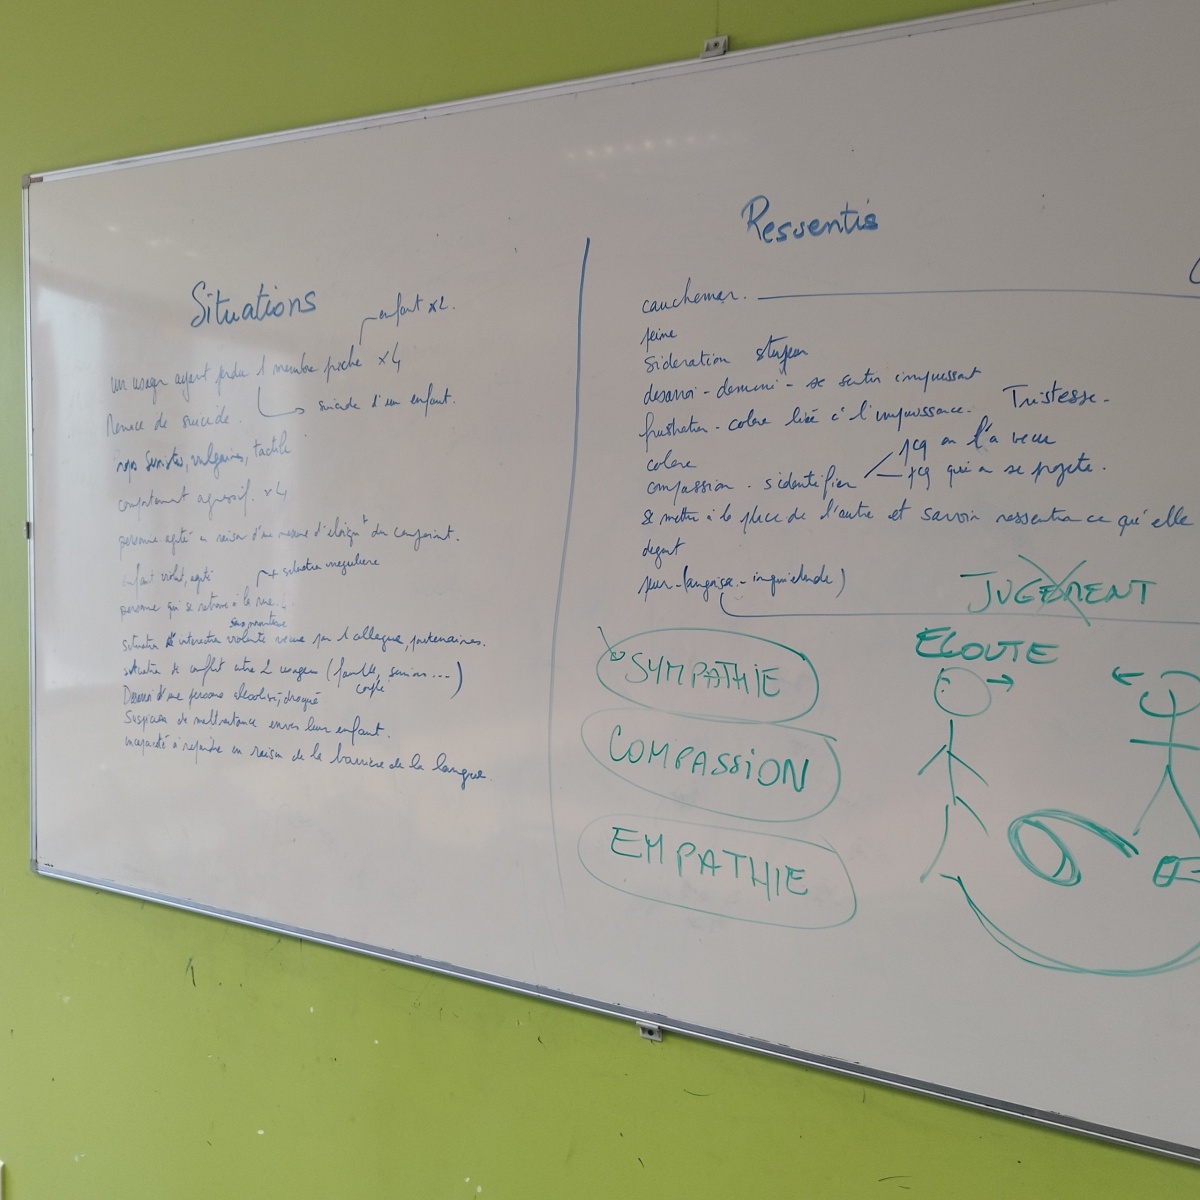 Situations
enfant x2.
un usager ayant perdu 1 membre proche x4
suicide d'un enfant.
Menace de suicide.
sexistes, vulgaires, tactile
comportement agressif. x4
personne agité en raison d'une mesure d'éloignt du conjoint.
enfant violent, agité
+ situation irrégulière
personne qui se retrouve à la rue...
situation d'interaction violente vécue par 1 collègue, partenaires.
situation de conflit entre 2 usagers (famille, seniors...)
couple
Dessous d'une personne alcoolisé, drogué
Suspicion de maltraitance envers leur enfant.
incapacité à répondre en raison de la barrière de la langue.
Ressentis
cauchemar.
peine
Sideration stupeur
desarroi - demuni - se sentir impuissant
frustration - colère liée à l'impuissance. Tristesse.
colère
pcq on l'a vécu
compassion - s'identifier
pcq qui a se projete.
Se mettre à la place de l'autre et savoir ressentir ce qu'elle
degout
peur - (angoisse - inquietude)
JUGEMENT
ECOUTE
SYMPATHIE
COMPASSION
EMPATHIE